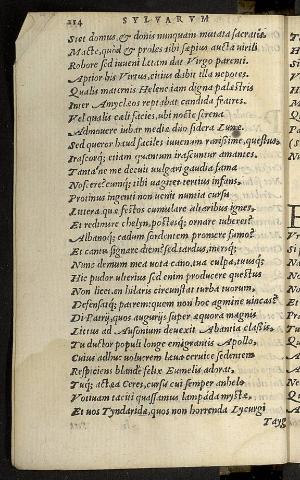 214 SYLVARVM
Stet domus, & donis nunquam mutata sacratis.
Macte, quòd & proles tibi sæpius aucta virili
Robore sed iuveni lætam dat Virgo parenti.
Aptior his Virtus, citius dabit illa nepotes.
Qualis maternis Helene iam digna palæstris
Inter Amycleos reptabat candida fratres.
Vel qualis cæli facies, ubi nocte serena
Admovere iubar media duo sidera Lunæ.
Sed queror haud faciles iuvenum rarissime, questus,
Irascorq; etiam quantum irascuntur amantes.
Tanta'ne me decuit vulgari gaudia fama
Noscere? cumq; tibi vagiret tertius infans,
Protinus ingenti non venit nuntia cursu
Littera, quæ festos cumulare altaribus ignes,
Et redimire chelyn, postesq; ornare iuberet?
Albanoq; cadum sordentem promere fumo?
Et cantu signare diem? sed tardus, inersq;
Nunc demum mea vota cano, tua culpa, tuusq;
Hic pudor ulterius sed enim producere questus
Non licet, en hilaris circunstat turba tuorum,
Defensatq; patrem: quem non hoc agmine vincas?
Di Patrij, quos augurijs super æquora magnis
Littus ad Ausonium devexit Abantia classis,
Tu ductor populi longe emigrantis Apollo,
Cuius adhuc volucrem leva cervice sedentem
Respiciens blandè felix Eumelis adorat,
Tuq; actæa Ceres, cursu cui semper anhelo
Votivam taciti quassamus lampada mystæ,
Et vos Tyndaridæ, quos non horrenda Lycurgi
Tayg